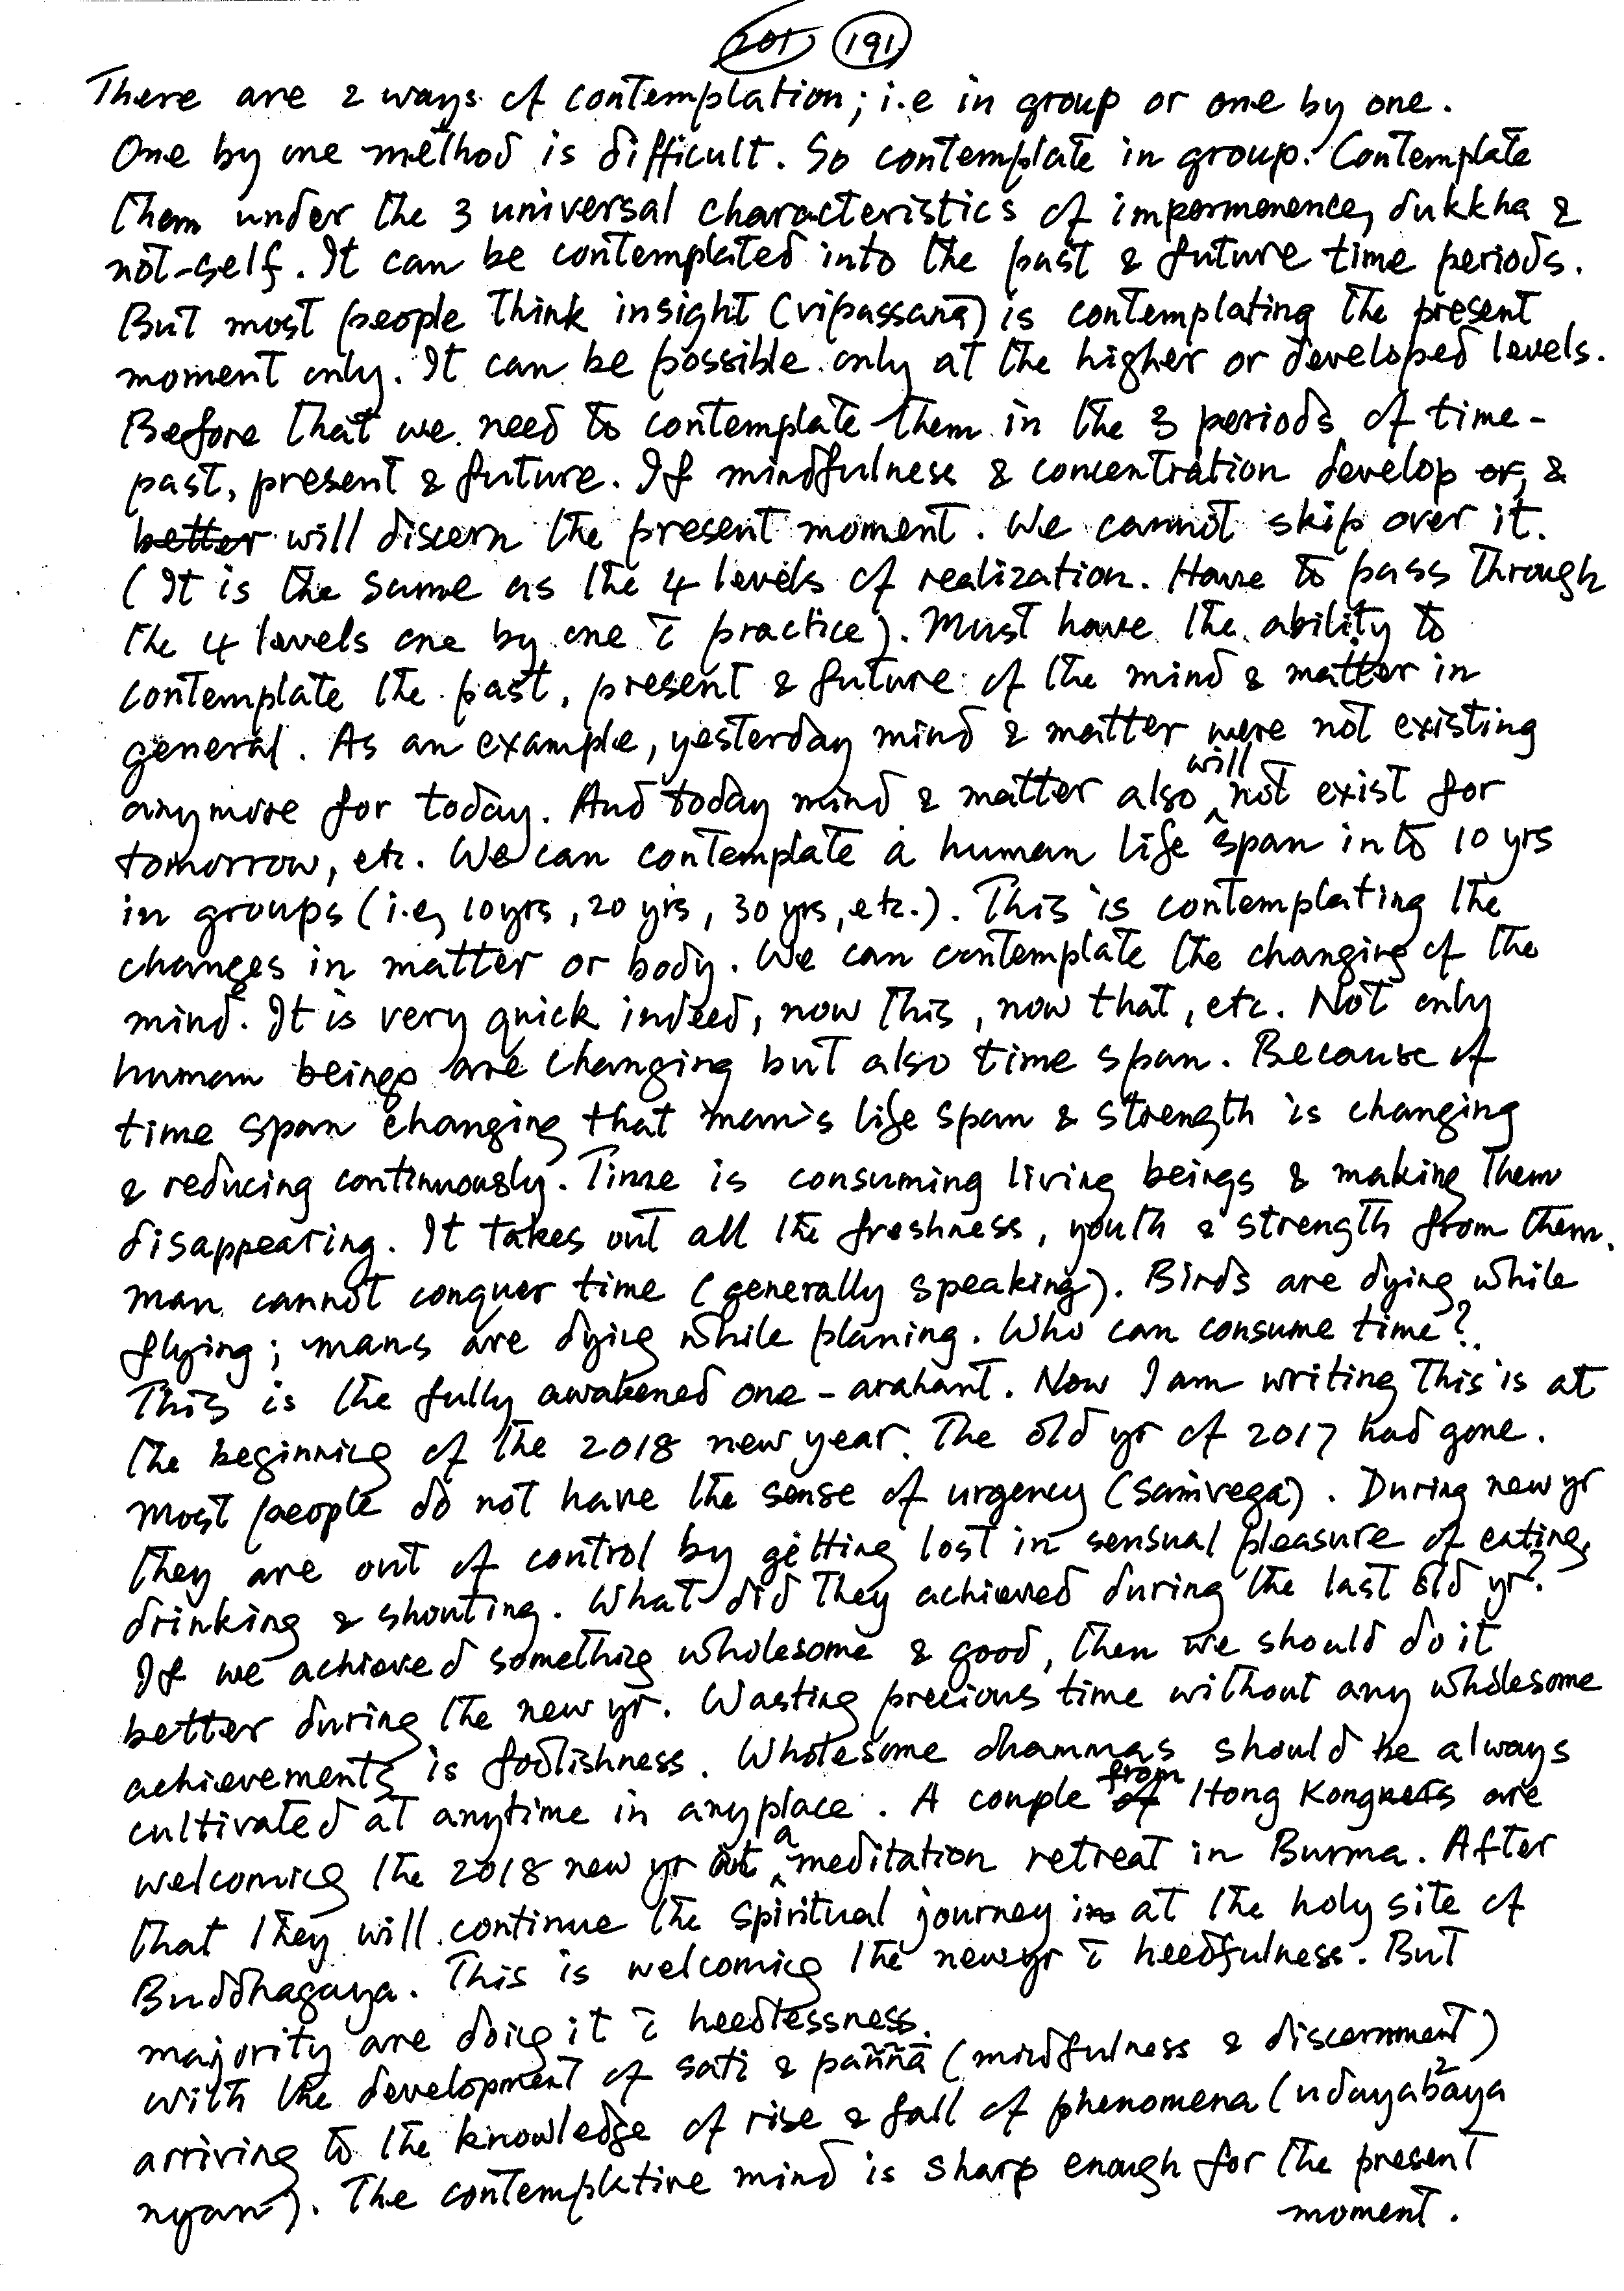 201 191
There are 2 ways of contemplation; i.e in group or one by one.
One by one method is difficult. So contemplate in group. Contemplate
them under the 3 universal characteristics of impermanence, dukkha &
not-self. It can be contemplated into the past & future time periods.
But most people think insight (vipassanā) is contemplating the present
moment only. It can be possible only at the higher or developed levels.
Before that we need to contemplate them in the 3 periods of time -
past, present & future. If mindfulness & concentration develop or, &
better will discern the present moment. We cannot skip over it.
(It is the same as the 4 levels of realization. Have to pass through
the 4 levels one by one c̄ practice). Must have the ability to
contemplate the past, present & future of the mind & matter in
general. As an example, yesterday mind & matter were not existing
anymore for today. And today mind & matter also will not exist for
tomorrow, etc. We can contemplate a human life span into 10 yrs
in groups (i.e, 10 yrs, 20 yrs, 30 yrs, etc.). This is contemplating the
changes in matter or body. We can contemplate the changing of the
mind. It is very quick indeed, now this, now that, etc. Not only
human beings are changing but also time span. Because of
time span changing that man's life span & strength is changing
& reducing continuously. Time is consuming living beings & making them
disappearing. It takes out all the freshness, youth & strength from them.
Man cannot conquer time (generally speaking). Birds are dying while
flying; mans are dying while planing. Who can consume time?
This is the fully awakened one - arahant. Now I am writing this is at
the beginning of the 2018 new year. The old yr of 2017 had gone.
Most people do not have the sense of urgency (saṁvega). During new yr
they are out of control by getting lost in sensual pleasure of eating,
drinking & shouting. What did they achieved during the last old yr?
If we achieved something wholesome & good, then we should do it
better during the new yr. Wasting precious time without any wholesome
achievements is foolishness. Wholesome dhammas should be always
cultivated at anytime in anyplace. A couple of from Hong Kongners are
welcoming the 2018 new yr at a meditation retreat in Burma. After
that they will continue the spiritual journey in at the holy site of
Buddhagaya. This is welcoming the new yr c̄ heedfulness. But
majority are doing it c̄ heedlessness.
With the development of sati & paññā (mindfulness & discernment)
arriving to the knowledge of rise & fall of phenomena (udayabaya
nyan). The contemplative mind is sharp enough for the present
moment.